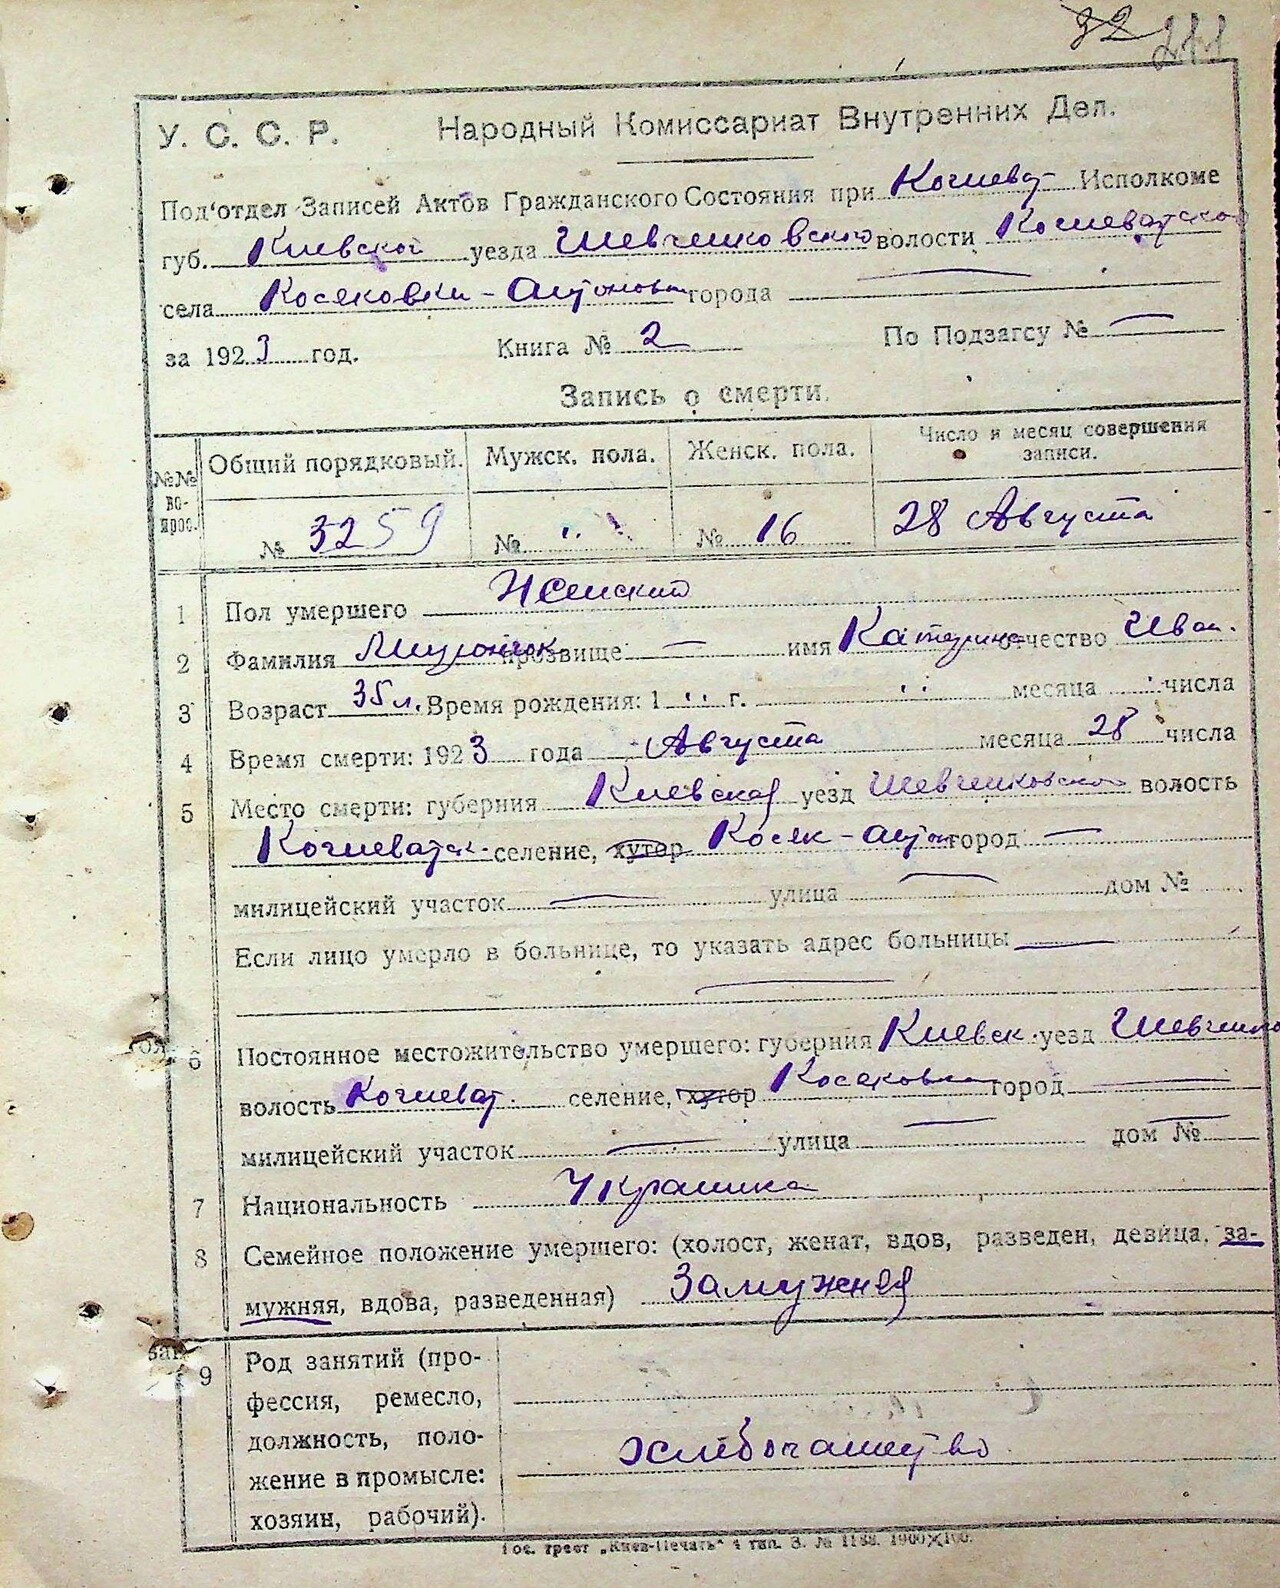 32 211
У. С. С. Р. Народный Комиссариат Внутренних Дел.
Под'отдел Записей Актов Гражданского Состояния при Кошеват Исполкоме
губ. Киевской уезда Шевченковского волости Кошеватской
села Косяковки-Антоновки города —
за 1923 год. Книга № 2 По Подзагсу № —
Запись о смерти.
№№ вопрос. Общий порядковый. Мужск. пола. Женск. пола. Число и месяц совершения записи.
№ 3259 № " № 16 28 Августа
1 Пол умершего Женский
2 Фамилия прозвище: — имя Катерина отчество Иван.
3 Возраст 35 л. Время рождения: 1 .. г. .. месяца .. числа
4 Время смерти: 1923 года Августа месяца 28 числа
5 Место смерти: губерния Киевская уезд Шевченковской волость
Кошеватск. селение, хутор Косяк-Антон город —
милицейский участок — улица — дом №
Если лицо умерло в больнице, то указать адрес больницы —
—
6 Постоянное местожительство умершего: губерния Киевск. уезд Шевченко
волость Кошеват. селение, хутор Косяковка город —
милицейский участок — улица — дом № —
7 Национальность Украинка
8 Семейное положение умершего: (холост, женат, вдов, разведен, девица, за-
мужняя, вдова, разведенная) Замужняя
9 Род занятий (про-
фессия, ремесло,
должность, поло- хлебопашество
жение в промысле:
хозяин, рабочий).
Гос. трест „Киев-Печать" 4 тип. З. № 1188. 1900×100.